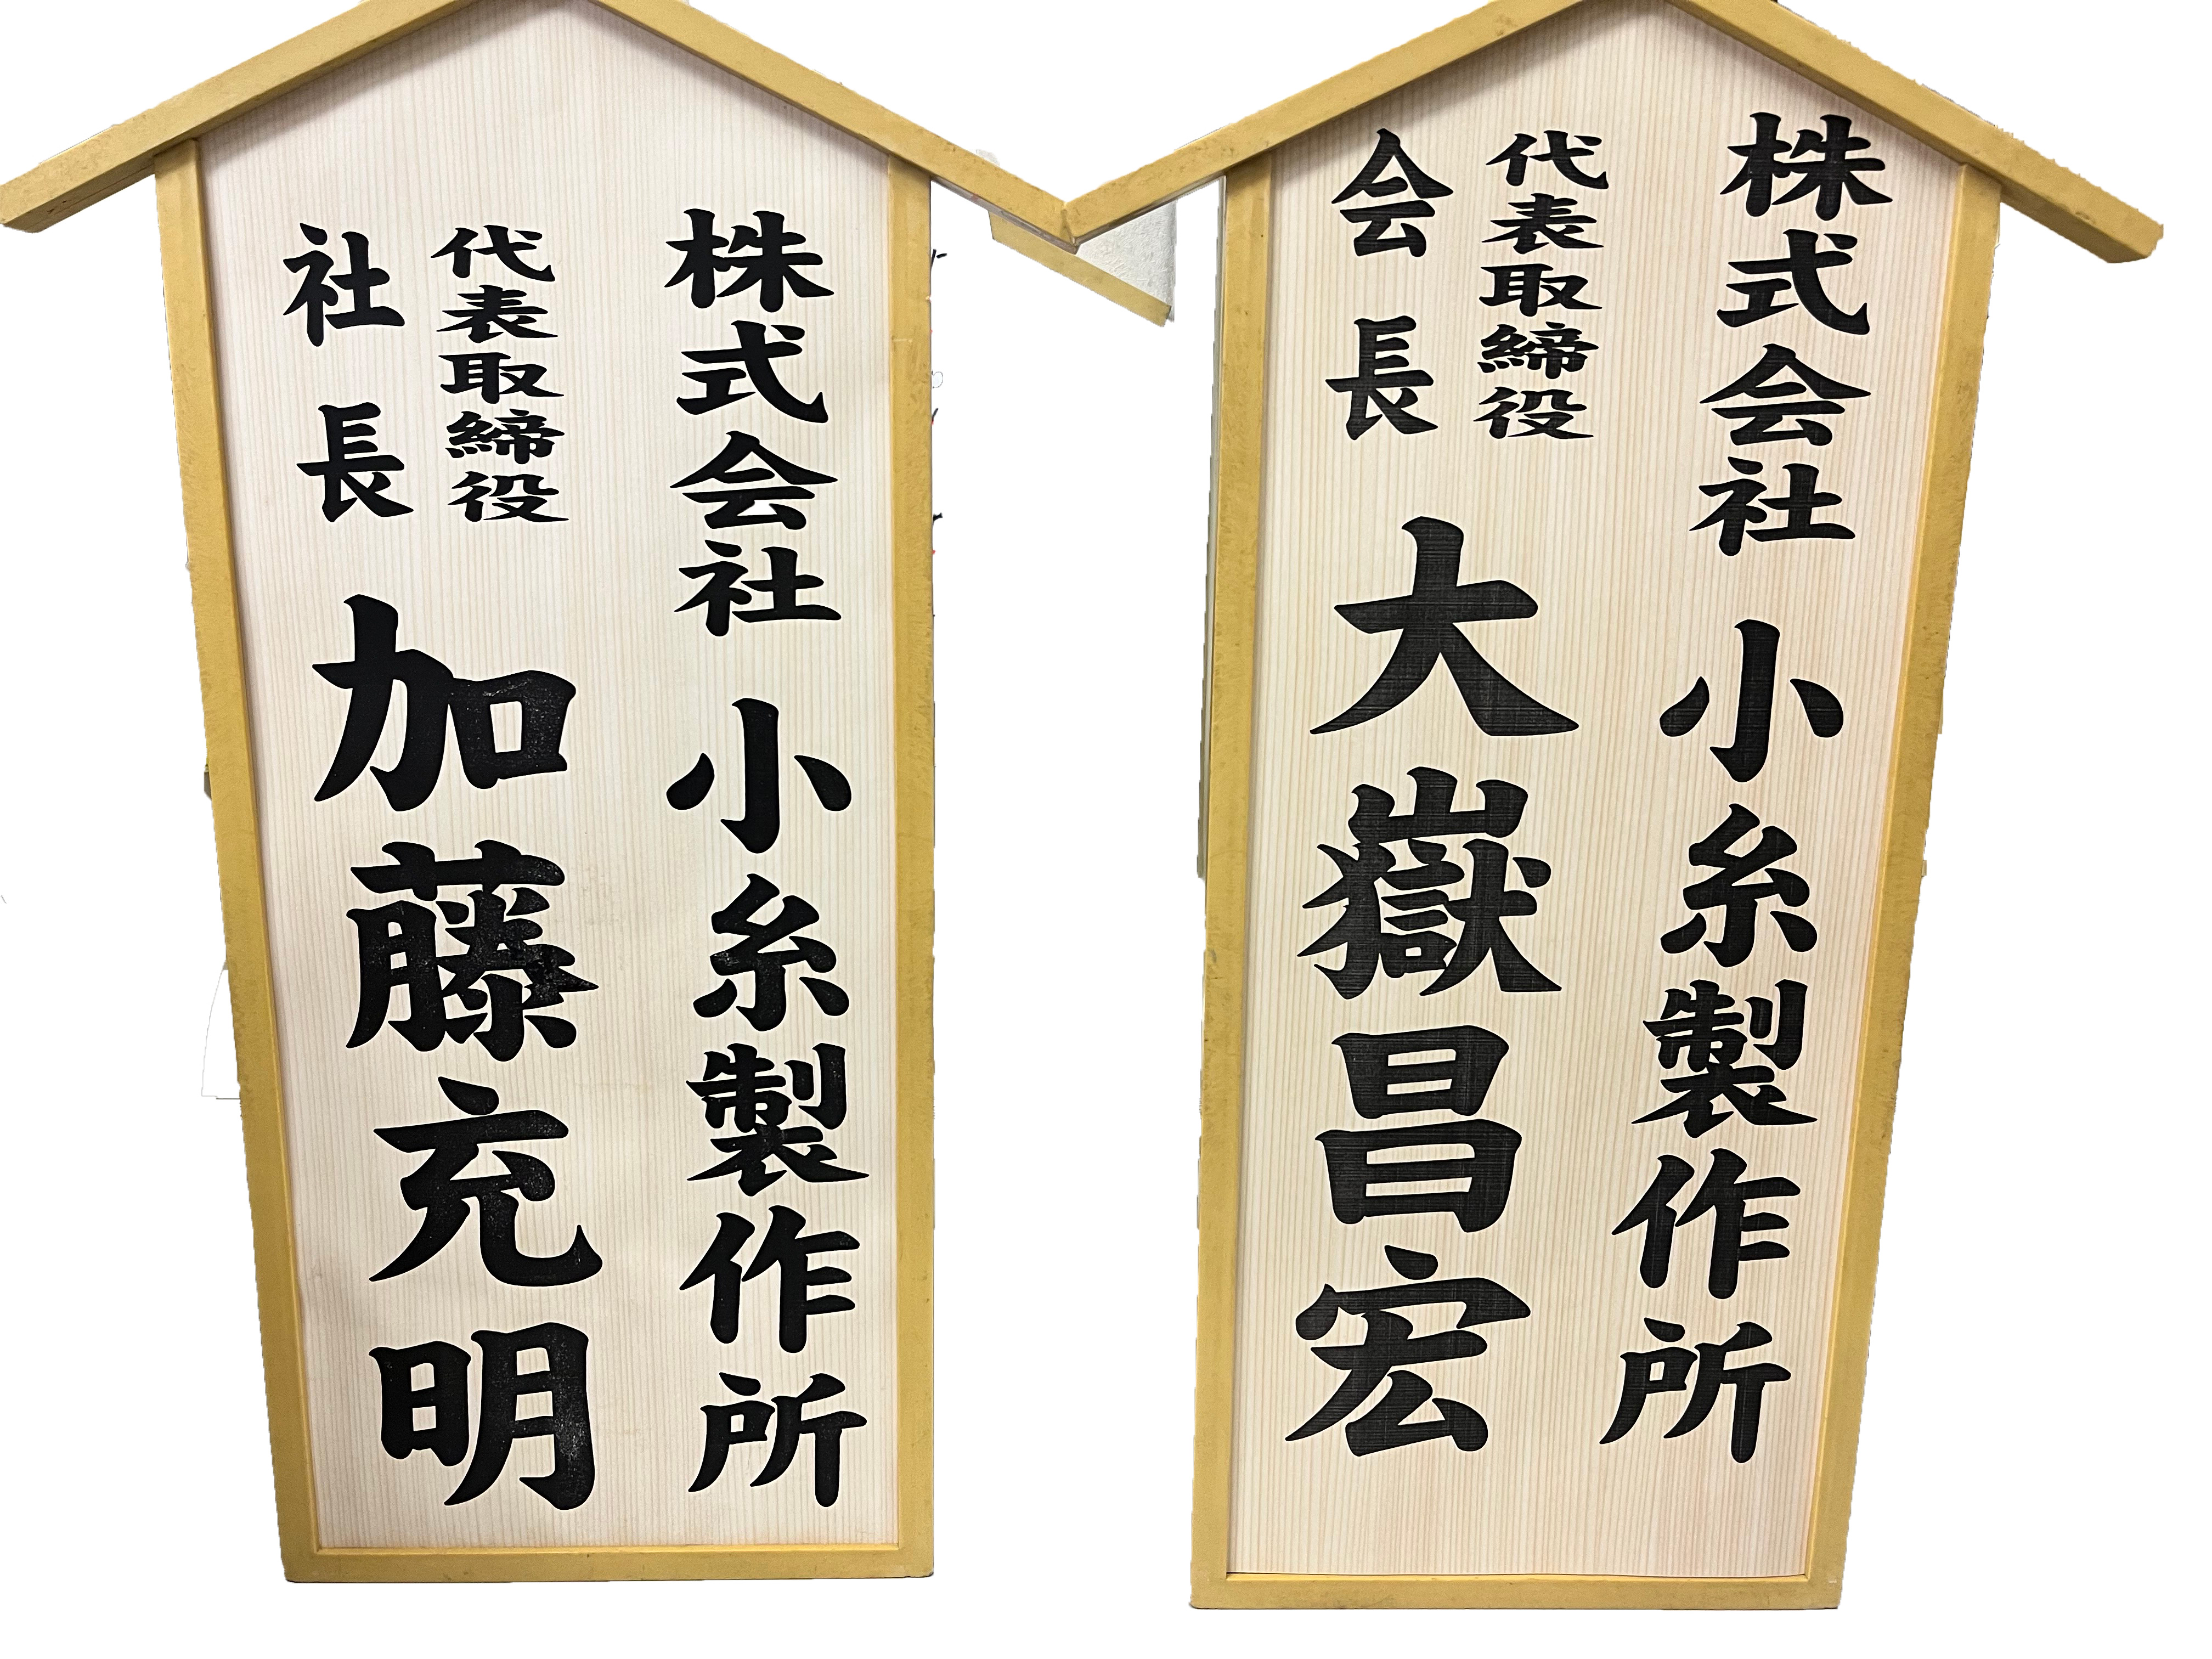 株式会社 小糸製作所
代表取締役
会長
大嶽昌宏
株式会社 小糸製作所
代表取締役
社長
加藤充明